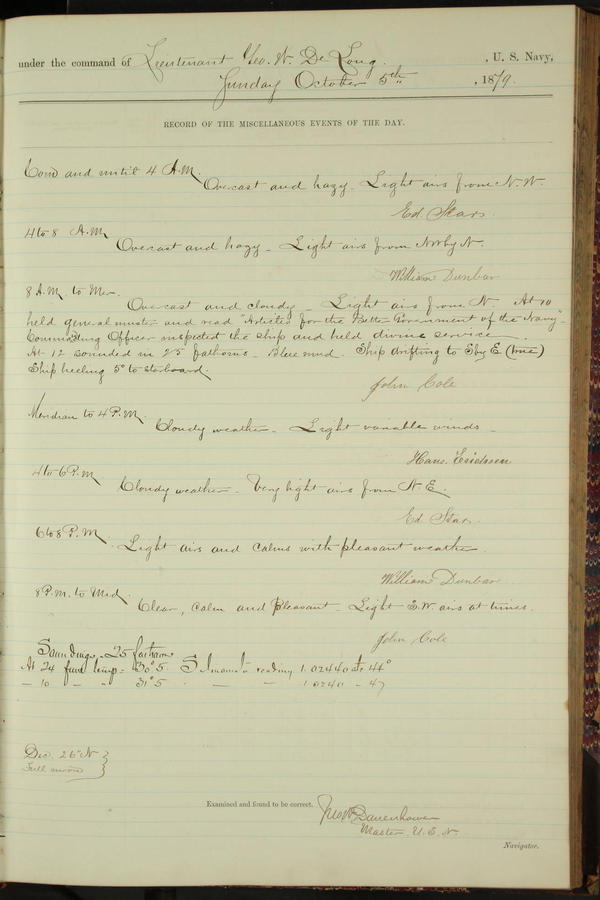 under the command of Lieutenant Geo. W. De Long. , U. S. Navy,
Sunday October 5th , 1879.
RECORD OF THE MISCELLANEOUS EVENTS OF THE DAY.
Com and until 4 A.M.
Overcast and hazy. Light airs from N.W.
Ed. Starr.
4 to 8 A.M.
Overcast and hazy. Light airs from NW by N.
William Dunbar
8 A.M. to Mer.
Overcast and cloudy. Light airs from N. At 10
held general muster and read "Articles for the Better Government of the Navy".
Commanding Officer inspected the ship and held divine service.
At 12 sounded in 25 fathoms. Blue mud. Ship drifting to S by E (true)
Ship heeling 5° to starboard.
John Cole
Meridian to 4 P.M.
Cloudy weather. Light variable winds.
Hans Ericksen
4 to 6 P.M.
Cloudy weather. Very light airs from N E.
Ed. Starr.
6 to 8 P.M.
Light airs and calms with pleasant weather.
William Dunbar
8 P.M. to Mid.
Clear, calm and pleasant. Light airs at times.
John Cole
Soundings 25 fathoms
At 24 fms temp = 30°5 reading 1.02440 at 44°
— 10 — — 31°5 — — 1.0240 — 47
Dec. 26° N
Full moon
Examined and found to be correct.
Danenhower
Master, U.S.N.
Navigator.